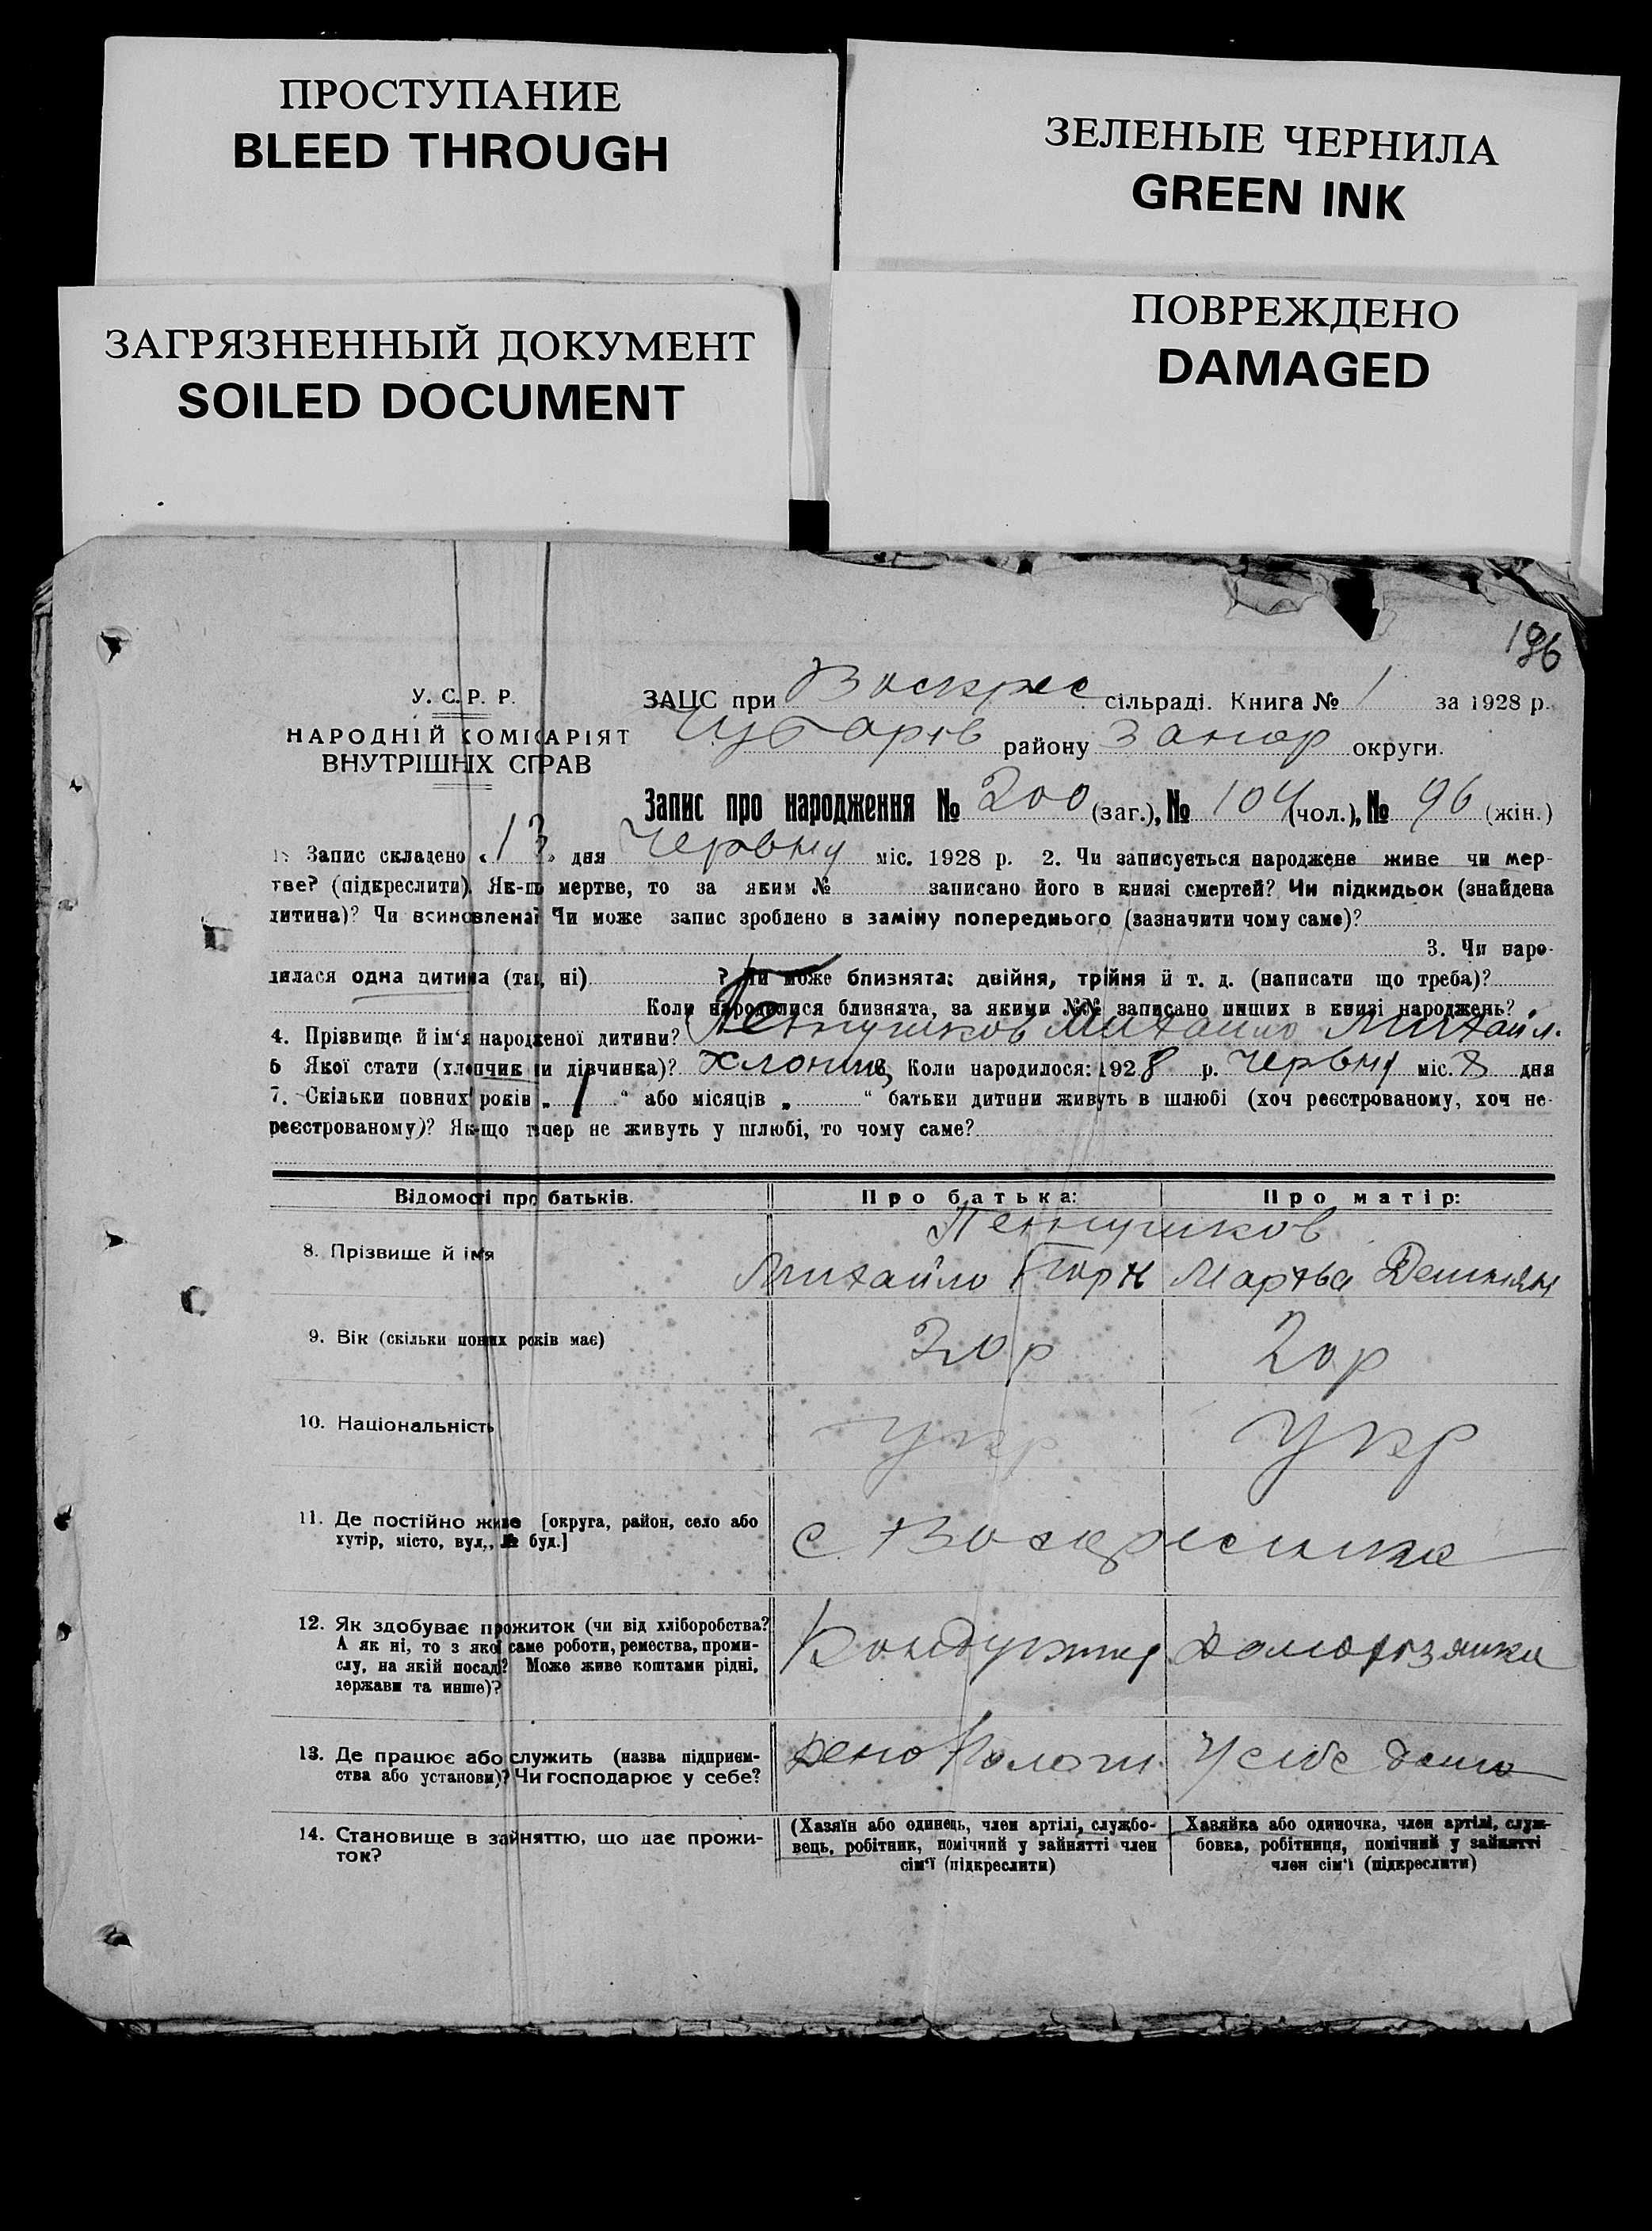 ПРОСТУПАНИЕ
BLEED THROUGH
ЗЕЛЕНЫЕ ЧЕРНИЛА
GREEN INK
ЗАГРЯЗНЕННЫЙ ДОКУМЕНТ
SOILED DOCUMENT
ПОВРЕЖДЕНО
DAMAGED
196
У. С. Р. Р.
НАРОДНІЙ КОМІСАРІЯТ
ВНУТРІШНІХ СПРАВ
ЗАЦС при Воскрес сільраді. Книга № 1 за 1928 р.
Чубарів району Запор округи.
Запис про народження № 200 (заг.), № 104 (чол.), № 96 (жін.)
1. Запис складено « 13 » дня Червня міс. 1928 р. 2. Чи записується народжене живе чи мер-
тве? (підкреслити). Як-що мертве, то за яким № записано його в книзі смертей? Чи підкидьок (знайдена
дитина)? Чи всиновлена? Чи може запис зроблено в заміну попереднього (зазначити чому саме)?
3. Чи наро-
дилася одна дитина (так, ні) ? Чи може близнята: двійня, трійня й т. д. (написати що треба)?
Коли народилися близнята, за якими №№ записано инших в книзі народжень?
4. Прізвище й ім'я народженої дитини? Михайло Михайл.
5 Якої стати (хлопчик чи дівчинка)? хлопчик Коли народилося: 1928 р. червня міс. 8 дня
7. Скільки повних років „ 1 “ або місяців „ “ батьки дитини живуть в шлюбі (хоч реєстрованому, хоч не-
реєстрованому)? Як-що тепер не живуть у шлюбі, то чому саме?
Відомості про батьків. Про батька: Про матір:
8. Прізвище й ім'я
Михайло Марфа
9. Вік (скільки повних років має) 20 р 20 р
10. Національність Укр Укр
11. Де постійно живе [округа, район, село або
хутір, місто, вул., № буд.] с. Воскресенка
12. Як здобуває прожиток (чи від хліборобства?
А як ні, то з якої саме роботи, ремества, проми-
слу, на якій посаді? Може живе коштами рідні,
держави та инше)? Кондуктор домохозяйка
13. Де працює або служить (назва підприєм-
ства або установи)? Чи господарює у себе? Депо Пологи У себе дома
14. Становище в зайняттю, що дає прожи-
ток?
(Хазяїн або одинець, член артілі, службо-
вець, робітник, помічний у зайнятті член
сім'ї (підкреслити)
Хазяйка або одиночка, член артілі, служ-
бовка, робітниця, помічний у зайнятті
член сім'ї (підкреслити)